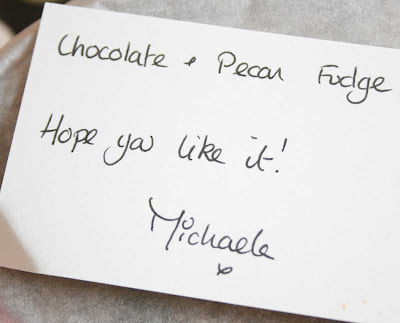 Chocolate & Pecan Fudge
Hope you like it!
Michaela
x